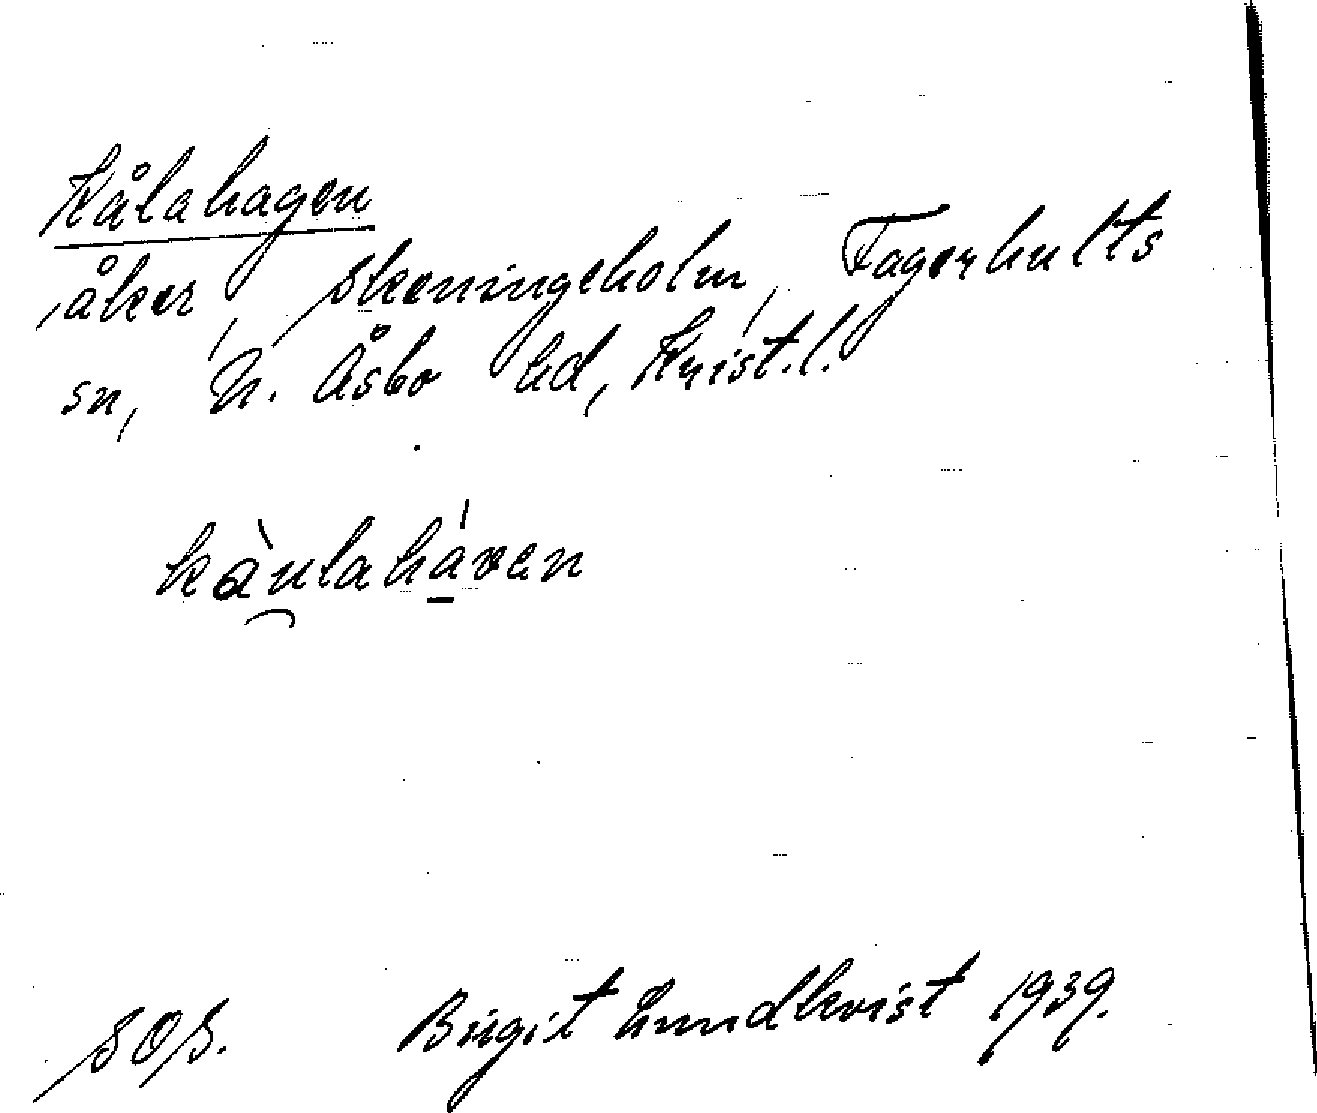 Kålahagen
åker, Skeningeholm, Fagerhults
sn, N. Åsbo hd, Krist.l.
kàulaháven
SOS. Birgit Lundkvist 1939.